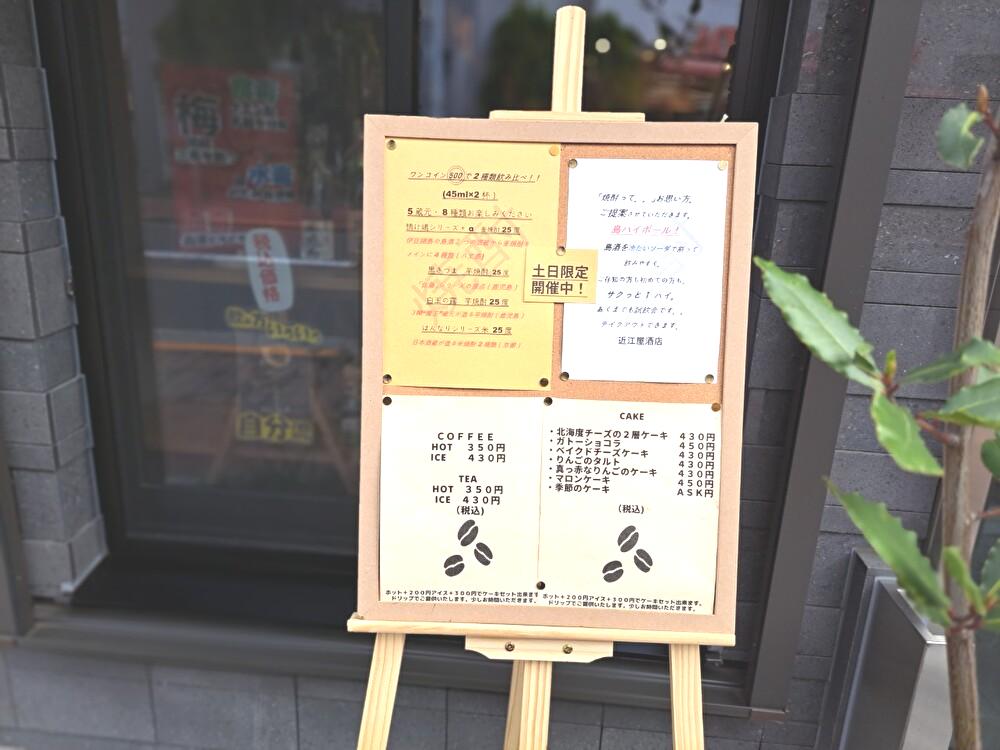 ワンコイン500で2種類飲み比べ!!
(45ml×2杯)
5蔵元・8種類お楽しみください
情け嶋シリーズ+α 麦焼酎25度
メインに4種類(八丈島)
黒さつま 芋焼酎25度
白玉の露 芋焼酎25度
はんなりシリーズ米 25度
日本酒蔵が造る米焼酎2種類(京都)
土日限定
開催中!
「焼酎って、。」お思い方、
ご提案させていただきます。
島ハイボール!
島酒を冷たいソーダで割って
飲みやすく。
ご存知の方も初めての方も、
サクっと1ハイ。
あくまでも試飲会です。
テイクアウトできます。
近江屋酒店
COFFEE
HOT 350円
ICE 430円
TEA
HOT 350円
ICE 430円
(税込)
ホット+200円アイス+300円でケーキセット出来ます
ドリップでご提供いたします。少しお時間いただきます。
CAKE
・北海度チーズの2層ケーキ 430円
・ガトーショコラ 450円
・ベイクドチーズケーキ 430円
・りんごのタルト 430円
・真っ赤なりんごのケーキ 430円
・マロンケーキ 450円
・季節のケーキ ASK円
(税込)
ホット+200円アイス+300円でケーキセット出来ます。
ドリップでご提供いたします。少しお時間いただきます。
梅
自分